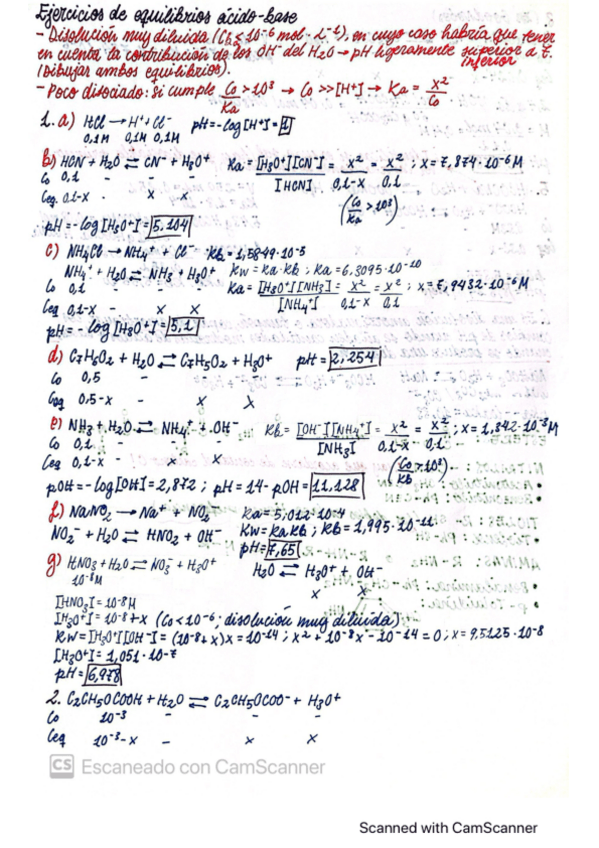 Ejercicios de equilibrios ácido-base
- Disolución muy diluida (C₀ ≤ 10⁻⁶ mol·L⁻¹), en cuyo caso habría que tener
en cuenta la contribución de los OH⁻ del H₂O → pH ligeramente superior a 7.
inferior
(Dibujar ambos equilibrios).
- Poco disociado: si cumple C₀/Ka > 10³ → C₀ >> [H⁺] → Ka = x²/C₀
1. a) HCl → H⁺ + Cl⁻ pH = -log[H⁺] = 1
0,1M 0,1M 0,1M
b) HCN + H₂O ⇌ CN⁻ + H₃O⁺ Ka = [H₃O⁺][CN⁻]/[HCN] = x²/0,1-x = x²/0,1; x = 7,874·10⁻⁶ M
C₀ 0,1 - - -
Ceq 0,1-x - x x (C₀/Ka > 10³)
pH = -log[H₃O⁺] = 5,104
c) NH₄Cl → NH₄⁺ + Cl⁻ Kb = 1,5849·10⁻⁵
NH₄⁺ + H₂O ⇌ NH₃ + H₃O⁺ Kw = Ka·Kb; Ka = 6,3095·10⁻¹⁰
C₀ 0,1 - - - Ka = [H₃O⁺][NH₃]/[NH₄⁺] = x²/0,1-x = x²/0,1; x = 7,9432·10⁻⁶ M
Ceq 0,1-x - x x
pH = -log[H₃O⁺] = 5,1
d) C₇H₆O₂ + H₂O ⇌ C₇H₅O₂ + H₃O⁺ pH = 2,254
C₀ 0,5 - - -
Ceq 0,5-x - x x
e) NH₃ + H₂O ⇌ NH₄⁺ + OH⁻ Kb = [OH⁻][NH₄⁺]/[NH₃] = x²/0,1-x = x²/0,1; x = 1,342·10⁻³ M
C₀ 0,1 - - -
Ceq 0,1-x - x x (C₀/Kb > 10³)
pOH = -log[OH] = 2,872; pH = 14 - pOH = 11,128
f) NaNO₂ → Na⁺ + NO₂ Ka = 5,012·10⁻⁴
NO₂⁻ + H₂O ⇌ HNO₂ + OH⁻ Kw = Ka Kb; Kb = 1,995·10⁻¹¹
pH = 7,65
g) HNO₃ + H₂O ⇌ NO₃⁻ + H₃O⁺ H₂O ⇌ H₃O⁺ + OH⁻
10⁻⁸M x x
[HNO₃] = 10⁻⁸M
[H₃O⁺] = 10⁻⁸ + x (C₀ < 10⁻⁶; disolución muy diluida)
Kw = [H₃O⁺][OH⁻] = (10⁻⁸+x)x = 10⁻¹⁴; x² + 10⁻⁸x - 10⁻¹⁴ = 0; x = 9,5125·10⁻⁸
[H₃O⁺] = 1,051·10⁻⁷
pH = 6,978
2. C₂CH₅OCOOH + H₂O ⇌ C₂CH₅OCOO⁻ + H₃O⁺
C₀ 10⁻³ - - -
Ceq 10⁻³-x - x x
CS Escaneado con CamScanner
Scanned with CamScanner